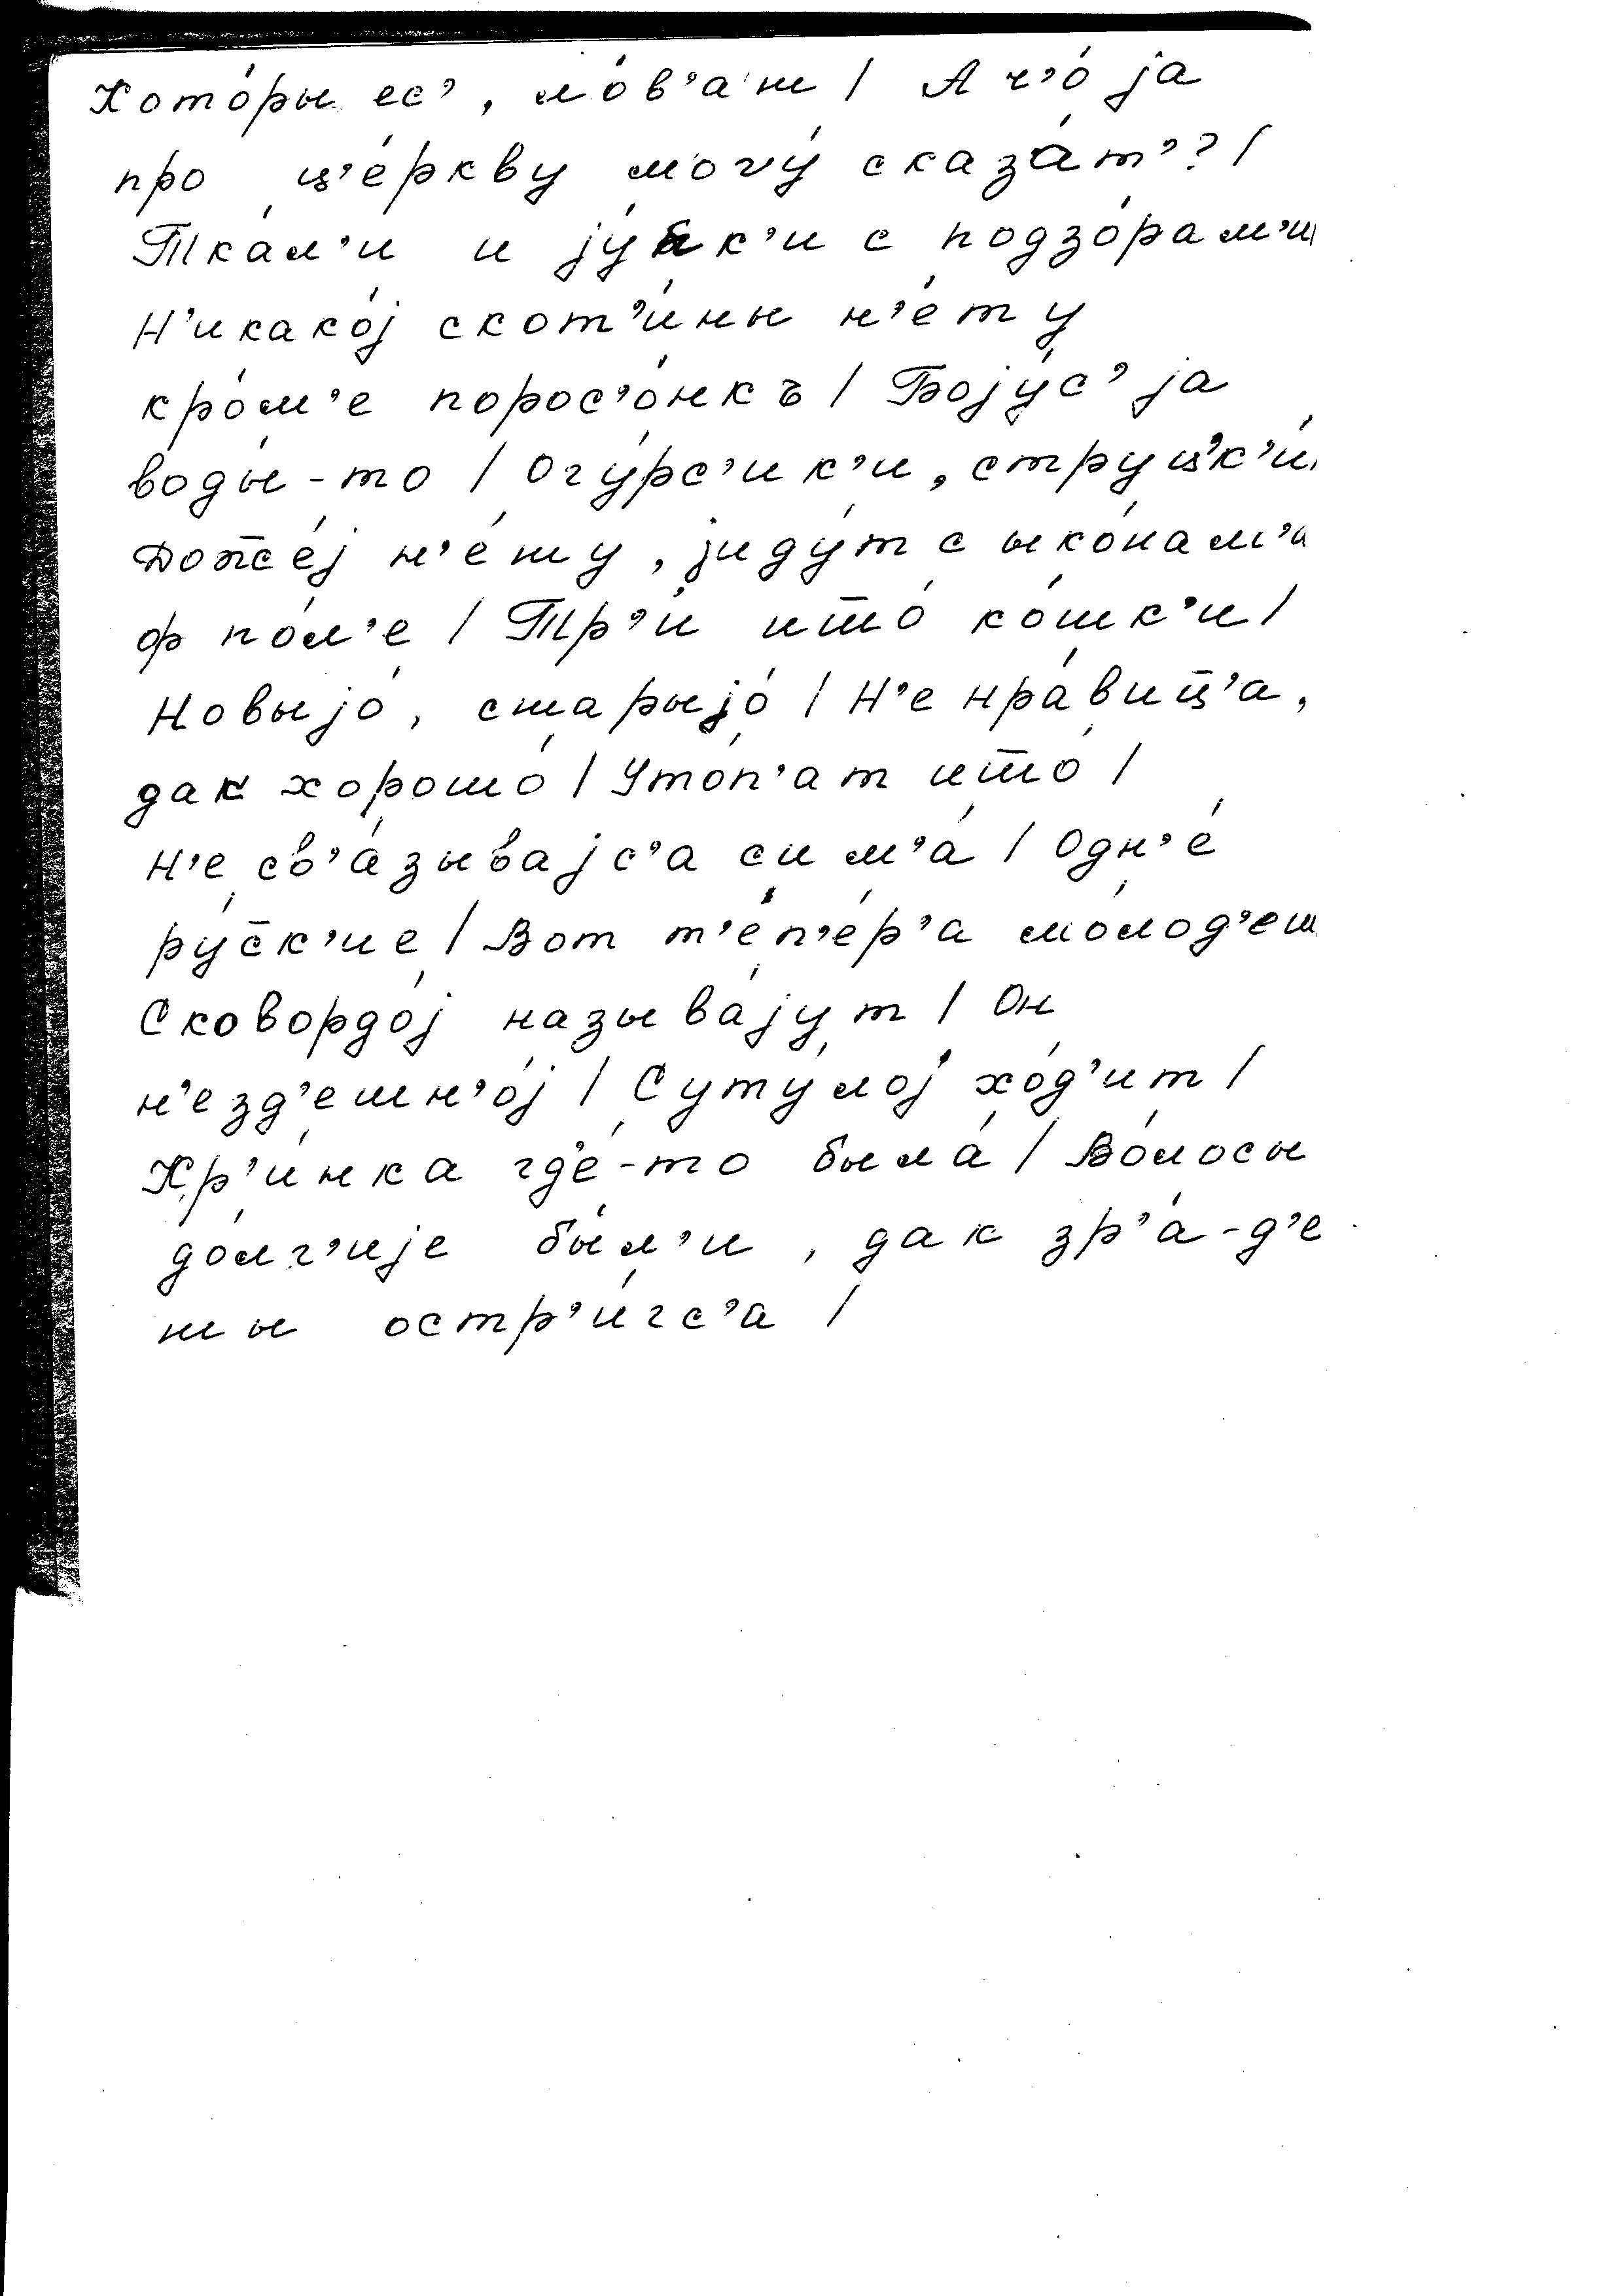 Кото́ры ес’, ло́в’ат / А ч’о́ jа
про ц’е́ркву могу́ сказа́т’? /
Тка́л’и и jу́пк’и с подзо́рам’и/
Н’икако́j скот’и́ны н’е́ту
кро́м’е порос’о́нкъ / Боjу́с’ jа
воды́-то / Огу́рс’ик’и, струц’к’и́
Дож̅е́j н’е́ту, jиду́т с ыко́нам’и
ф по́л’е / Тр’и́ што́ ко́шк’и /
Новыjо́, старыjо́ / Н’е нра́виц̅’а,
дак хорошо́ / Уто́п’ат што́ /
Н’е св’а́зываjс’а с и м’а́ / Одн’е́
ру́с̅к’ие / Вот т’е́п’е́р’а мо́лод’еш
Сковордо́j называ́jут / Он
н’езд’ешн’о́j / Суту́лоj хо́д’ит /
Кр’и́нка гд’е́-то была́ / Во́лосы
до́лг’иjе бы́л’и, дак зр’а́-д’е
ты остр’и́гс’а /